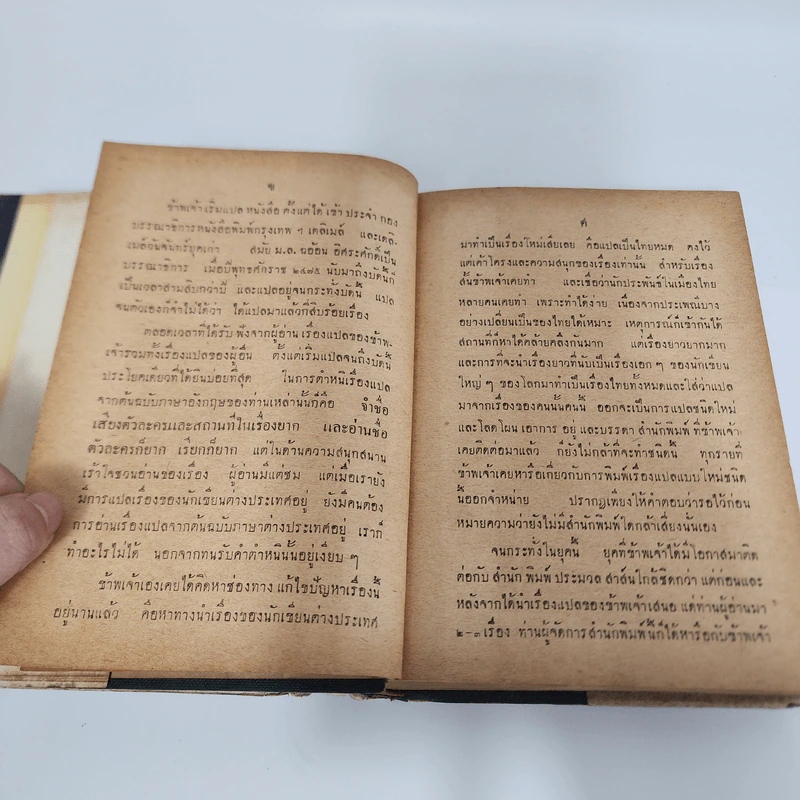 ข
ข้าพเจ้าเริ่มแปล หนังสือ ตั้งแต่ ได้ เข้า ประจำ กอง
บรรณาธิการหนังสือพิมพ์กรุงเทพ ฯ เดลิเมล์ และเดลิ-
เมล์วันจันทร์ยุคเก่า สมัย ม.ล. ฉอ้อน อิศระศักดิ์เป็น
บรรณาธิการ เมื่อปีพุทธศักราช ๒๔๗๕ นับมาถึงบัดนี้ก็
เป็นเวลาสามสิบกว่าปี และแปลอยู่จนกระทั่งบัดนี้ แปล
จนตัวเองก็จำไม่ได้ว่า ได้แปลมาแล้วกี่สิบร้อยเรื่อง
ตลอดเวลาที่ได้รับ ฟังจากผู้อ่าน เรื่องแปลของข้าพ-
เจ้ารวมทั้งเรื่องแปลของผู้อื่น ตั้งแต่เริ่มแปลจนถึงบัดนี้
ประโยคเดียวที่ได้ยินบ่อยที่สุด ในการตำหนิเรื่องแปล
จากต้นฉบับภาษาอังกฤษของท่านเหล่านั้นก็คือ จำชื่อ
เสียงตัวละครและสถานที่ในเรื่องยาก และอ่านชื่อ
ตัวละครก็ยาก เรียกก็ยาก แต่ในด้านความสนุกสนาน
เร้าใจชวนอ่านของเรื่อง ผู้อ่านมีแต่ชม แต่เมื่อเรายัง
มีการแปลเรื่องของนักเขียนต่างประเทศอยู่ ยังมีคนต้อง
การอ่านเรื่องแปลจากต้นฉบับภาษาต่างประเทศอยู่ เราก็
ทำอะไรไม่ได้ นอกจากทนรับคำตำหนินั้นอยู่เงียบ ๆ
ข้าพเจ้าเองเคยได้คิดหาช่องทาง แก้ไขปัญหาเรื่องนี้
อยู่นานแล้ว คือหาทางนำเรื่องของนักเขียนต่างประเทศ
ค
มาทำเป็นเรื่องใหม่เสียเลย คือแปลเป็นไทยหมด คงไว้
แต่เค้าโครงและความสนุกของเรื่องเท่านั้น สำหรับเรื่อง
สั้นข้าพเจ้าเคยทำ และเชื่อว่านักประพันธ์ในเมืองไทย
หลายคนเคยทำ เพราะทำได้ง่าย เนื่องจากประเพณีบาง
อย่างเปลี่ยนเป็นของไทยได้เหมาะ เหตุการณ์ก็เข้ากันได้
สถานที่ก็หาได้คล้ายคลึงกันมาก แต่เรื่องยาวยากมาก
และการที่จะนำเรื่องยาวที่นับเป็นเรื่องเอก ๆ ของนักเขียน
ใหญ่ ๆ ของโลกมาทำเป็นเรื่องไทยทั้งหมดและใส่ว่าแปล
มาจากเรื่องของคนนั้นคนนี้ ออกจะเป็นการแปลชนิดใหม่
และโลดโผน เอาการ อยู่ และบรรดา สำนักพิมพ์ ที่ข้าพเจ้า
เคยติดต่อมาแล้ว ก็ยังไม่กล้าที่จะทำชนิดนี้ ทุกรายที่
ข้าพเจ้าเคยหารือเกี่ยวกับการพิมพ์เรื่องแปลแบบใหม่ชนิด
นี้ออกจำหน่าย ปรากฏเพียงให้คำตอบว่ารอไว้ก่อน
หมายความว่ายังไม่มีสำนักพิมพ์ใดกล้าเสี่ยงนั่นเอง
จนกระทั่งในยุคนี้ ยุคที่ข้าพเจ้าได้มีโอกาสมาติด
ต่อกับ สำนัก พิมพ์ ประมวล สาส์นใกล้ชิดกว่า แต่ก่อนและ
หลังจากได้นำเรื่องแปลของข้าพเจ้าเสนอ แด่ท่านผู้อ่านมา
๒-๓ เรื่อง ท่านผู้จัดการสำนักพิมพ์นี้ก็ได้หารือกับข้าพเจ้า